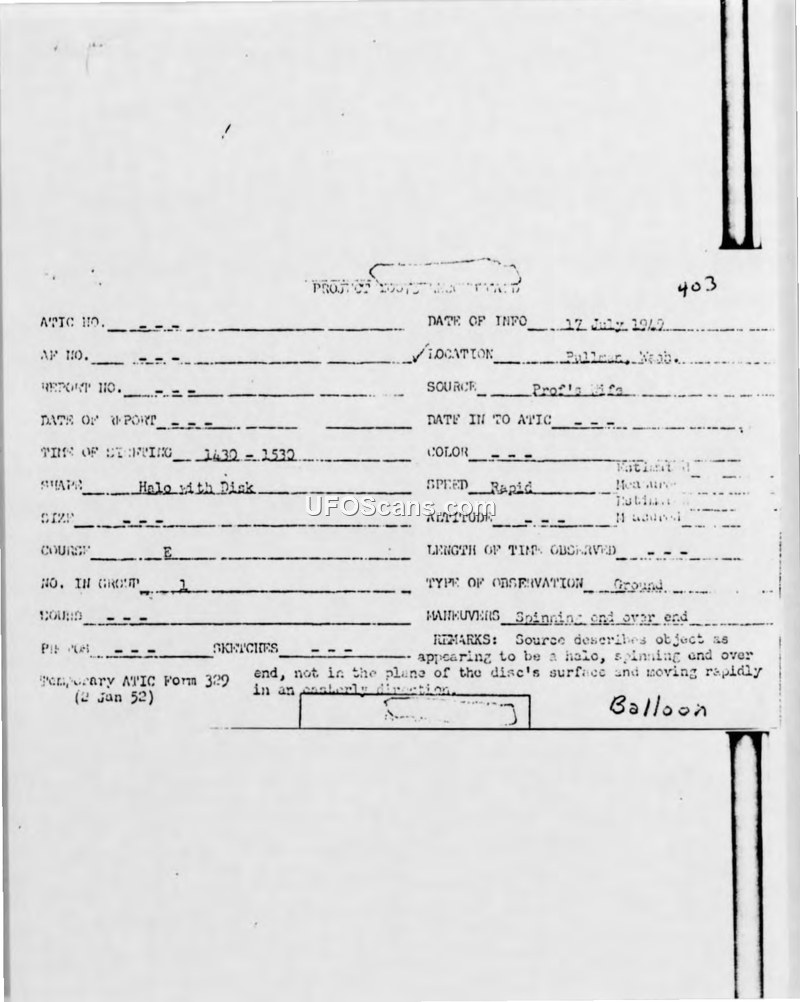 PROJECT
403
ATIC NO. - - - DATE OF INFO 17 July 1949
AF NO. - - - ✓LOCATION Pullman, Wash.
REPORT NO. - - - SOURCE Prof's Wife
DATE OF REPORT - - - DATE IN TO ATIC - - -
TIME OF SIGHTING 1430 - 1530 COLOR - - -
SHAPE Halo with Disk SPEED Rapid
UFOScans.com
SIZE - - - ALTITUDE - - -
COURSE E LENGTH OF TIME OBSERVED - - -
NO. IN GROUP 1 TYPE OF OBSERVATION Ground
SOUND - - - MANEUVERS Spinning end over end
- - - SKETCHES - - - REMARKS: Source describes object as
appearing to be a halo, spinning end over
Temporary ATIC Form 329 end, not in the plane of the disc's surface and moving rapidly
(2 Jan 52) in an easterly direction.
Balloon